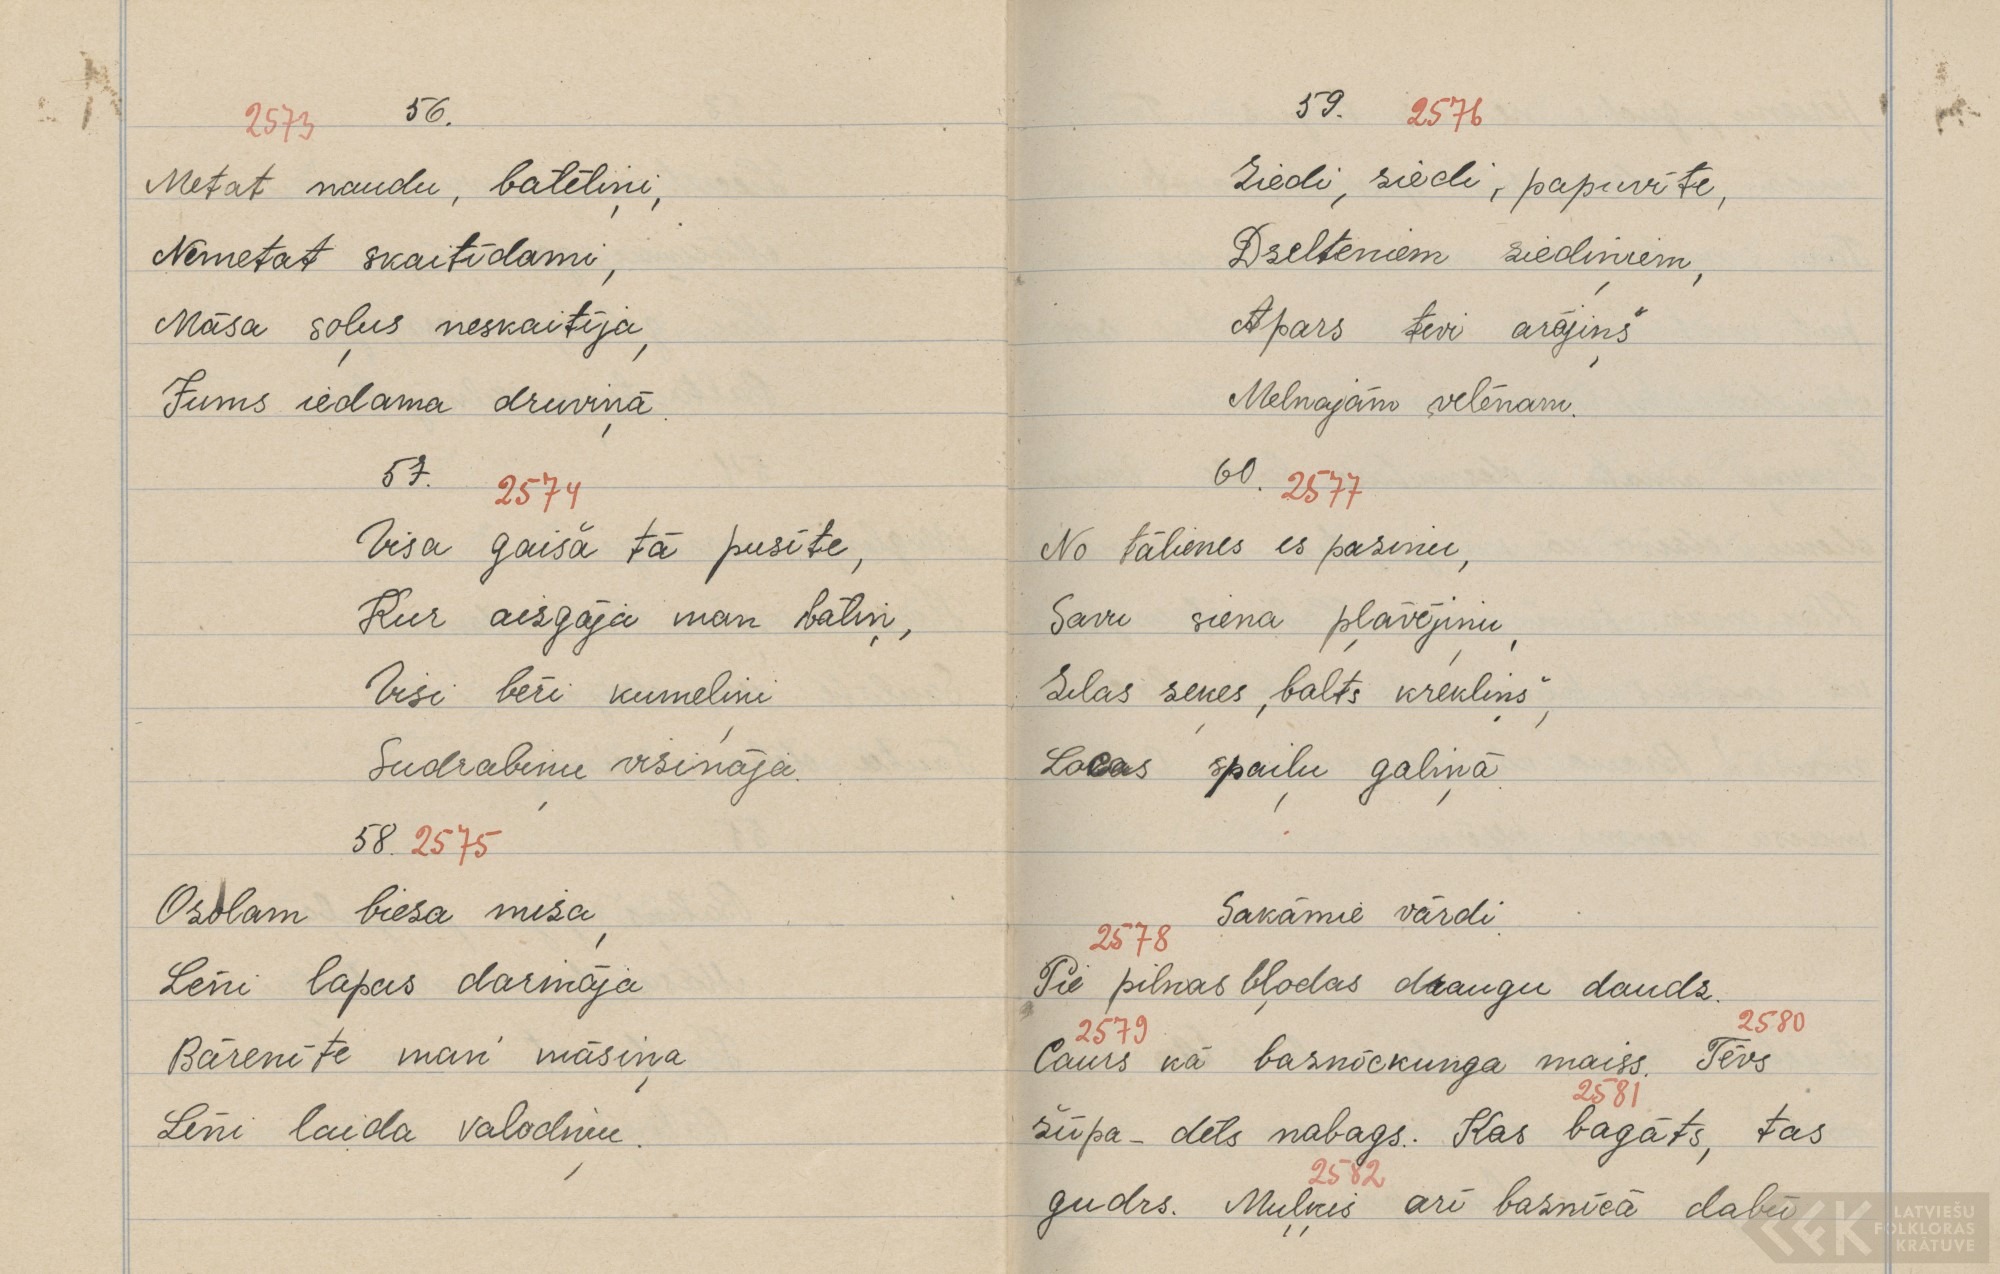 2573 56.
Metat naudu, bālēliņi,
Nemetat skaitīdami,
Māsa soļus neskaitīja,
Jums iedama druviņā
57. 2574
Visa gaiša tā pusīte,
Kur aizgāja man bāliņ,
Visi bēri kumeliņi
Sudrabiņu vizināja.
58. 2575
Ozolam bieza miza,
Lēni lapas darināja
Bārenīte man' māsiņa
Lēni laida valodiņu.
59. 2576
Ziedi, ziedi, papuvīte,
Dzelteniem ziediņiem,
Apars tevi arājiņš
Melnajām velēnam.
60. 2577
No tālienes es pazinu,
Savu siena pļāvējiņu,
Zilas zeķes, balts krekliņš,
Locas spaiļu galiņā.
Sakāmie vārdi.
2578
Pie pilnas bļodas draugu daudz.
2579 2580
Caurs kā baznīckunga maiss. Tēvs
2581
žūpa - dēls nabags. Kas bagāts, tas
2582
gudrs. Muļķis arī baznīcā dabū
LATVIEŠU
FOLKLORAS
KRĀTUVE